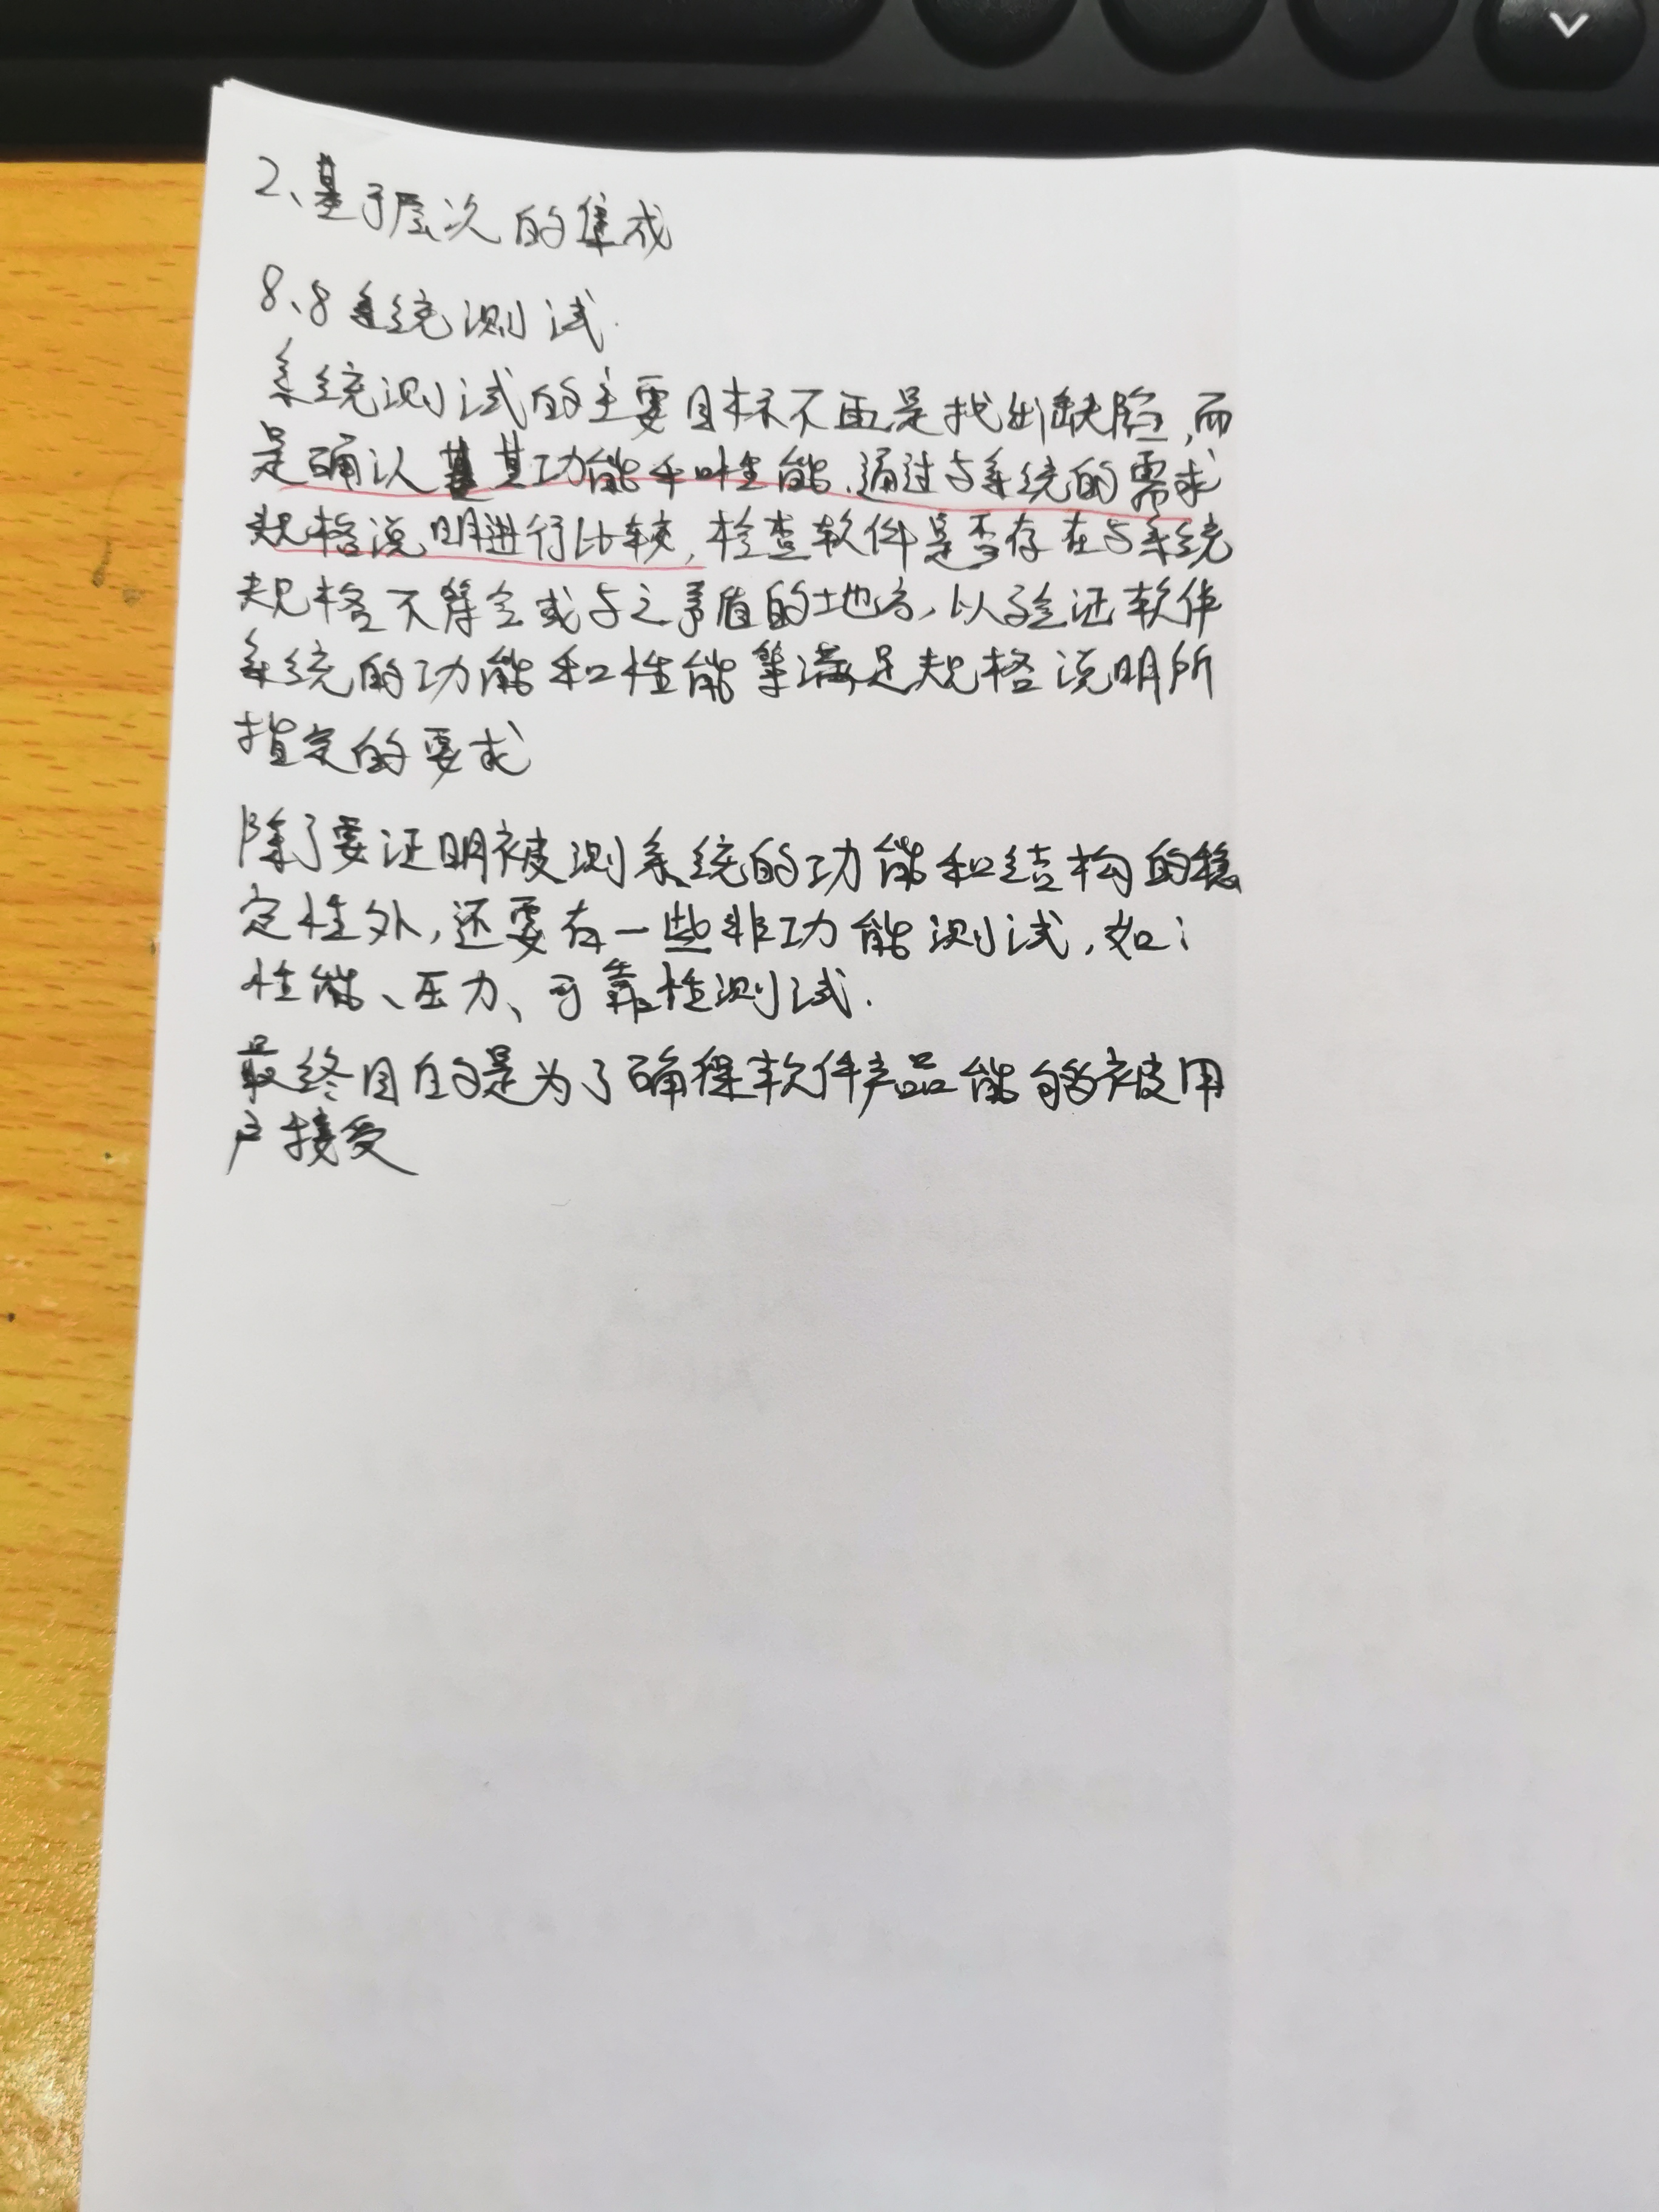 2、基于层次的集成
8、8系统测试.
系统测试的主要目标不再是找出缺陷,而
是确认其功能和性能.通过与系统的需求
规格说明进行比较,检查软件是否存在与系统
规格不符合或与之矛盾的地方,以验证软件
系统的功能和性能等满足规格说明所
指定的要求
除了要证明被测系统的功能和结构的稳
定性外,还要有一些非功能测试,如:
性能、压力、可靠性测试.
最终目的是为了确保软件产品能够被用
户接受